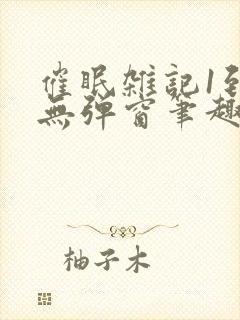 催眠雑記1到
無弹窗筆趣
柚子木